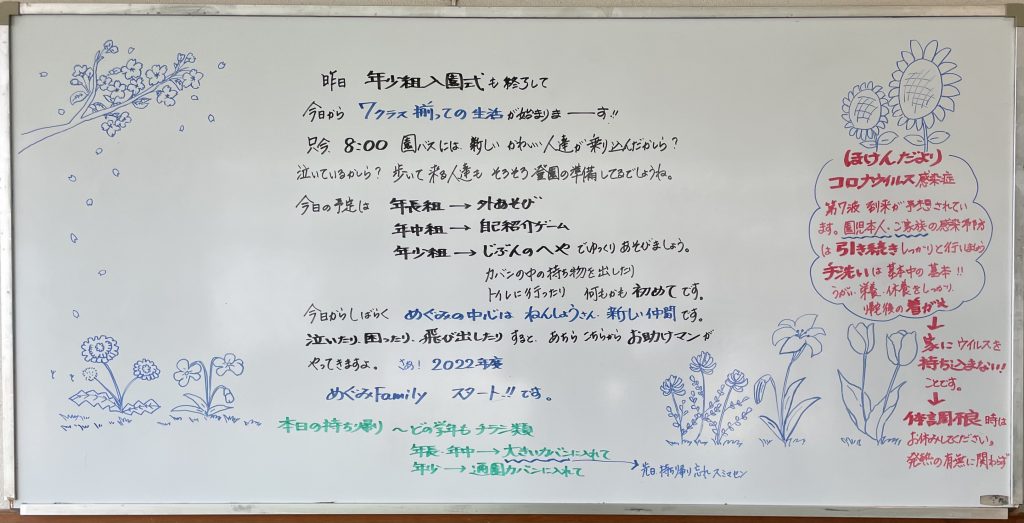 昨日 年少組入園式も終了して
今日から 7クラス揃っての生活が始まりまーーす!!
只今 8:00 園バスには 新しい かわいい人達が乗り込んだかしら?
泣いているかしら? 歩いて来る人達も そろそろ登園の準備してるでしょうね。
今日の予定は 年長組→外あそび
年中組→自己紹介ゲーム
年少組→じぶんのへやでゆっくりあそびましょう。
カバンの中の持ち物を出したり
トイレに行ったり 何もかも初めてです。
今日からしばらく めぐみの中心は ねんしょうさん・新しい仲間です。
泣いたり、困ったり、飛び出したりすると、あちらこちらからお助けマンが
やってきますよ。 さぁ! 2022年度
めぐみFamily スタート!!です。
本日の持ち帰り 〜どの学年もチラシ類
年長・年中→大きいカバンに入れて
年少→通園カバンに入れて
→先日持ち帰り忘れスミマセン
ほけんだより
コロナウイルス感染症
第7波 到来が予想されてい
ます。園児本人・ご家族の感染予防
は引き続きしっかりと行いましょう
手洗いは基本中の基本!!
うがい・栄養・休養をしっかり
帰宅後の着がえ
↓
家にウイルスを
持ち込まない!
ことです。
↓
体調不良時は
お休みしてください。
発熱の有無に関わらず